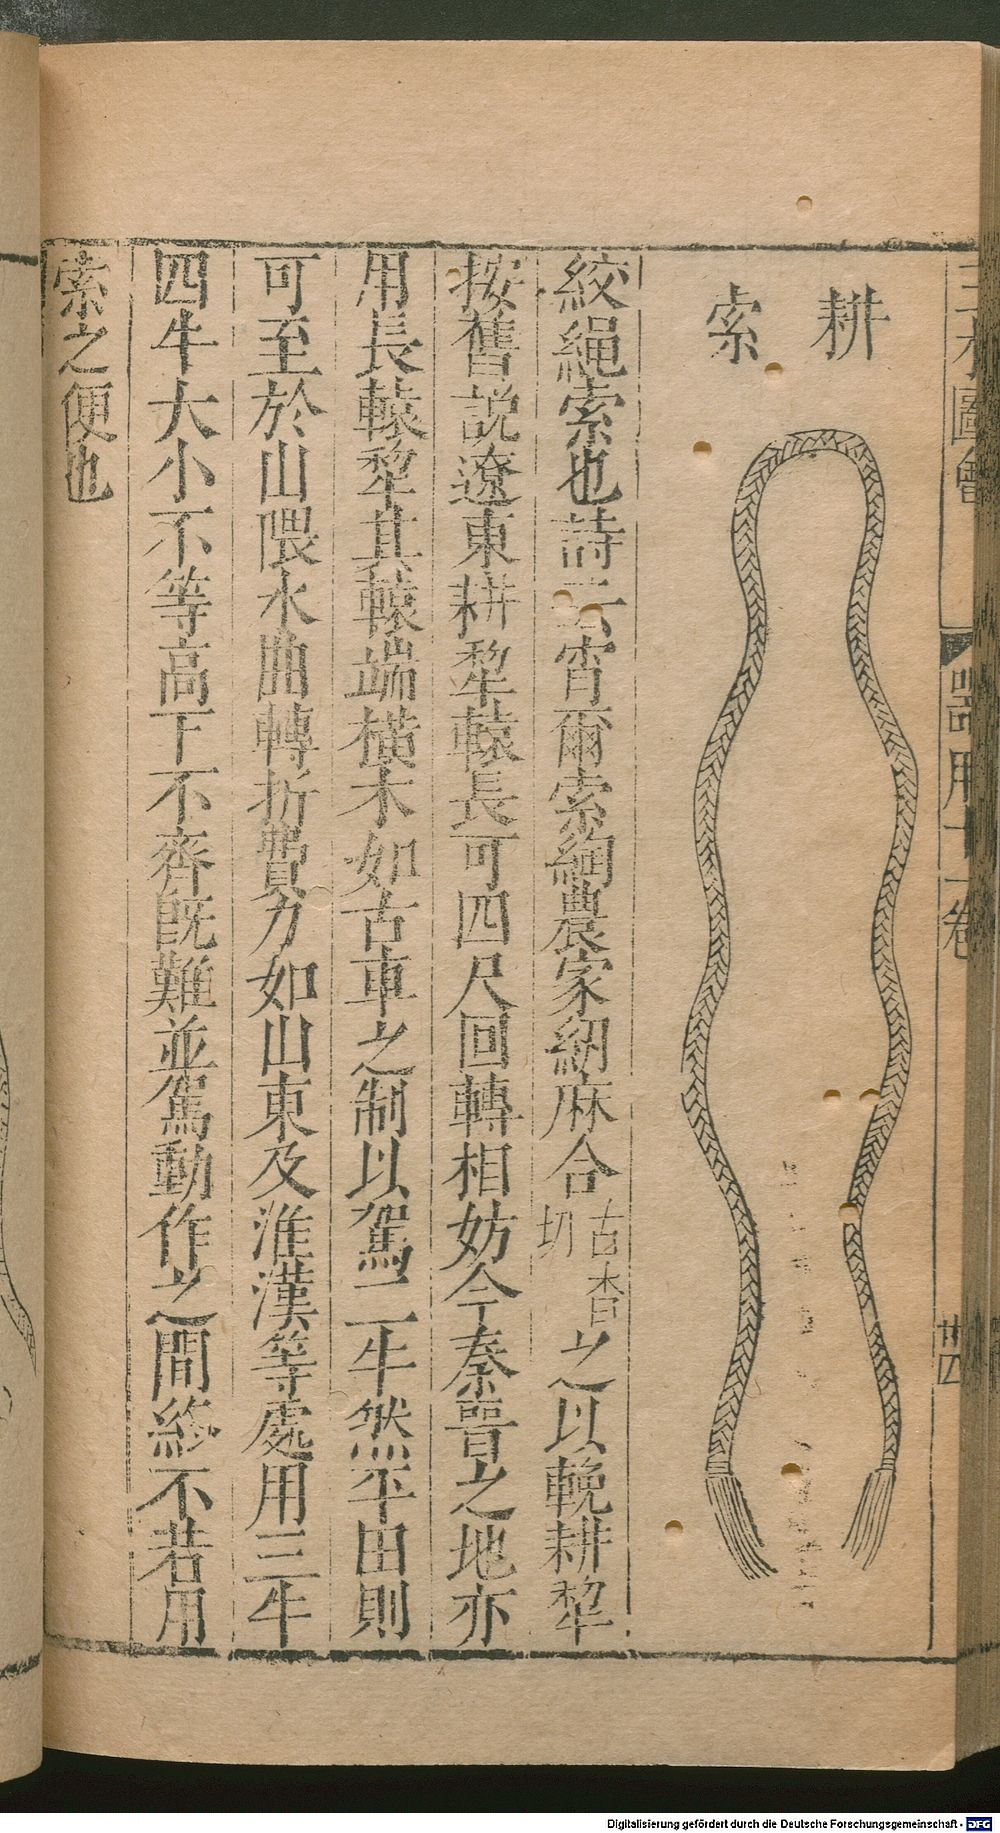 耕索
絞繩索也詩云宵爾索綯農家紉麻合古杳切之以輓耕犂
按舊説遼東耕犂轅長可四尺回轉相妨今秦晉之地亦
用長轅犂其轅端橫木如古車之制以駕二牛然平田則
可至於山隈水曲轉折費力如山東及淮漢等處用三牛
四牛大小不等高下不齊既難並駕動作之間終不若用
索之便也
圖會
器用十一卷
廿四
Digitalisierung gefördert durch die Deutsche Forschungsgemeinschaft - DFG